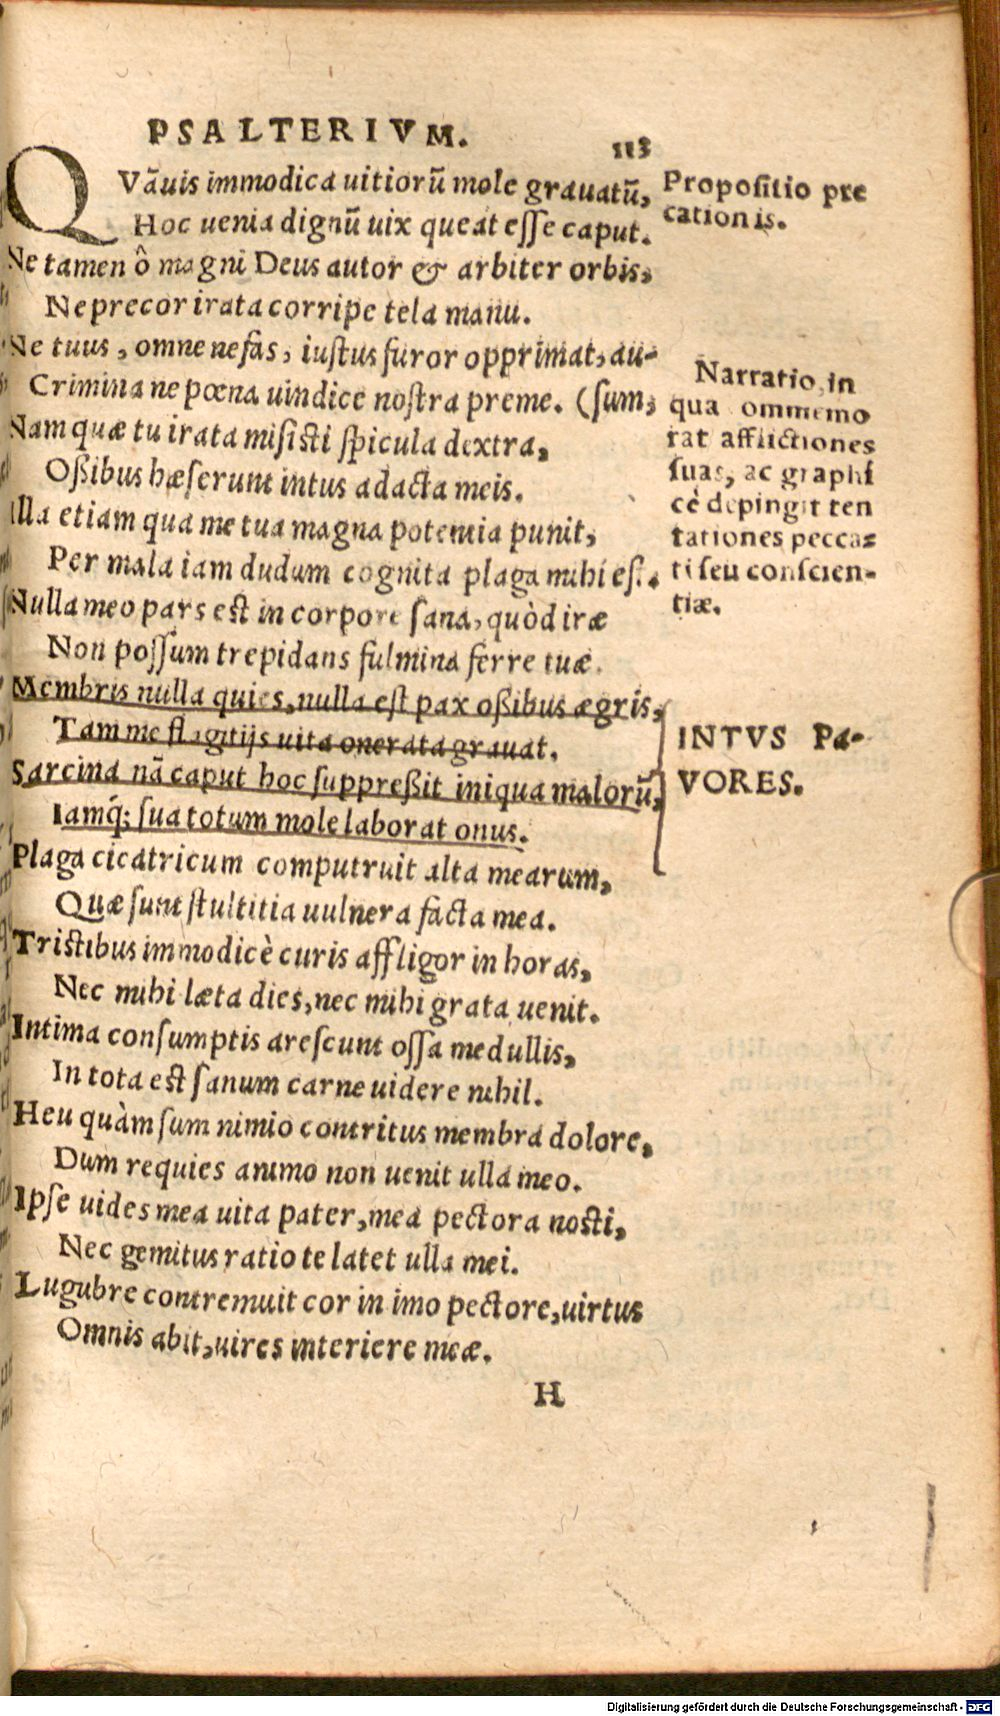 PSALTERIVM.
113
QVãuis immodica uitiorũ mole grauatũ,
Hoc uenia dignũ uix queat esse caput.
Ne tamen ô magni Deus autor & arbiter orbis,
Ne precor irata corripe tela manu.
Ne tuus, omne nefas, iustus furor opprimat, au-
Crimina ne pœna uindice nostra preme. (sum,
Nam quæ tu irata misisti spicula dextra,
Oßibus hæserunt intus adacta meis.
Illa etiam qua me tua magna potentia punit,
Per mala iam dudum cognita plaga mihi est.
Nulla meo pars est in corpore sana, quòd iræ
Non possum trepidans fulmina ferre tuæ.
Membris nulla quies, nulla est pax oßibus ægris,
Tam me flagitijs uita onerata grauat.
Sarcina nã caput hoc suppreßit iniqua malorũ,
Iamq́; sua totum mole laborat onus.
Plaga cicatricum computruit alta mearum,
Quæ sunt stultitia uulnera facta mea.
Tristibus immodicè curis affligor in horas,
Nec mihi læta dies, nec mihi grata uenit.
Intima consumptis arescunt ossa medullis,
In tota est sanum carne uidere nihil.
Heu quàm sum nimio contritus membra dolore,
Dum requies animo non uenit ulla meo.
Ipse uides mea uita pater, mea pectora nosti,
Nec gemitus ratio te latet ulla mei.
Lugubre contremuit cor in imo pectore, uirtus
Omnis abit, uires interiere meæ.
H
Propositio pre
cationis.
Narratio, in
qua commemo
rat afflictiones
suas, ac graphi
cè depingit ten
tationes pecca-
ti seu conscien-
tiæ.
INTVS Pa-
VORES.
Digitalisierung gefördert durch die Deutsche Forschungsgemeinschaft - DFG